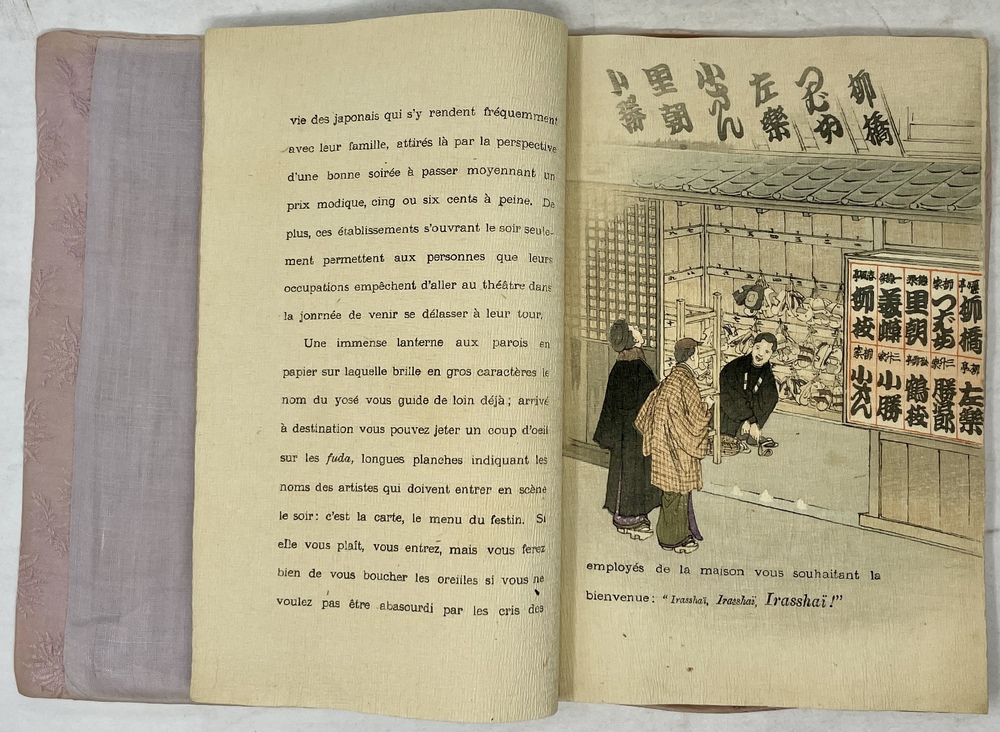 vie des japonais qui s'y rendent fréquemment
avec leur famille, attirés là par la perspective
d'une bonne soirée à passer moyennant un
prix modique, cinq ou six cents à peine. De
plus, ces établissements s'ouvrant le soir seule-
ment permettent aux personnes que leurs
occupations empêchent d'aller au théâtre dans
la jonrnée de venir se délasser à leur tour.
Une immense lanterne aux parois en
papier sur laquelle brille en gros caractères le
nom du yosé vous guide de loin déjà; arrivé
à destination vous pouvez jeter un coup d'oeil
sur les fuda, longues planches indiquant les
noms des artistes qui doivent entrer en scène
le soir: c'est la carte, le menu du festin. Si
elle vous plaît, vous entrez, mais vous ferez
bien de vous boucher les oreilles si vous ne
voulez pas être abasourdi par les cris des
柳橋
つばめ
左樂
小さん
里朝
小勝
柳橋
つばめ
里朝
柳枝
左樂
小勝
鶴枝
小さん
employés de la maison vous souhaitant la
bienvenue: "Irasshaï, Irasshaï, Irasshaï!"